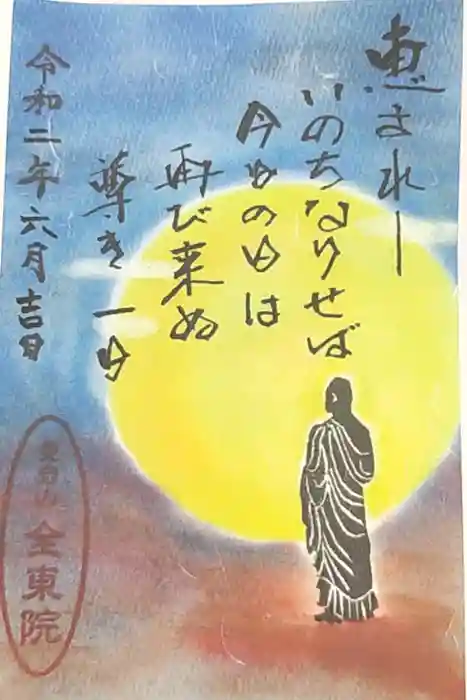 恵まれし
いのちなりせば
今日の日は
再び来ぬ
尊き 一日
令和二年六月吉日
全東院